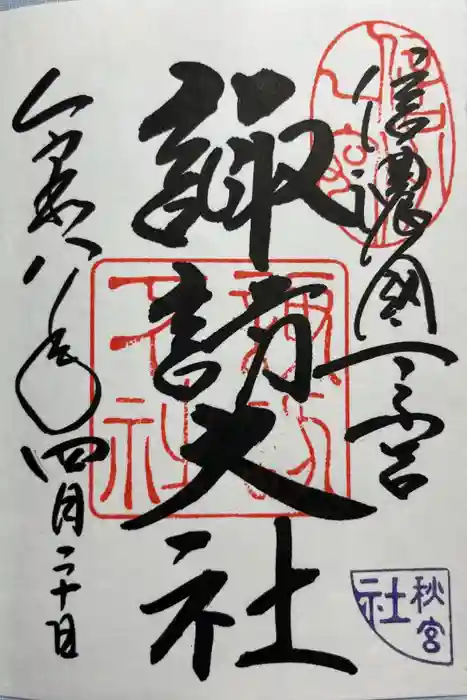 信濃國一之宮
諏訪大社
令和八年四月二十日
秋宮
社